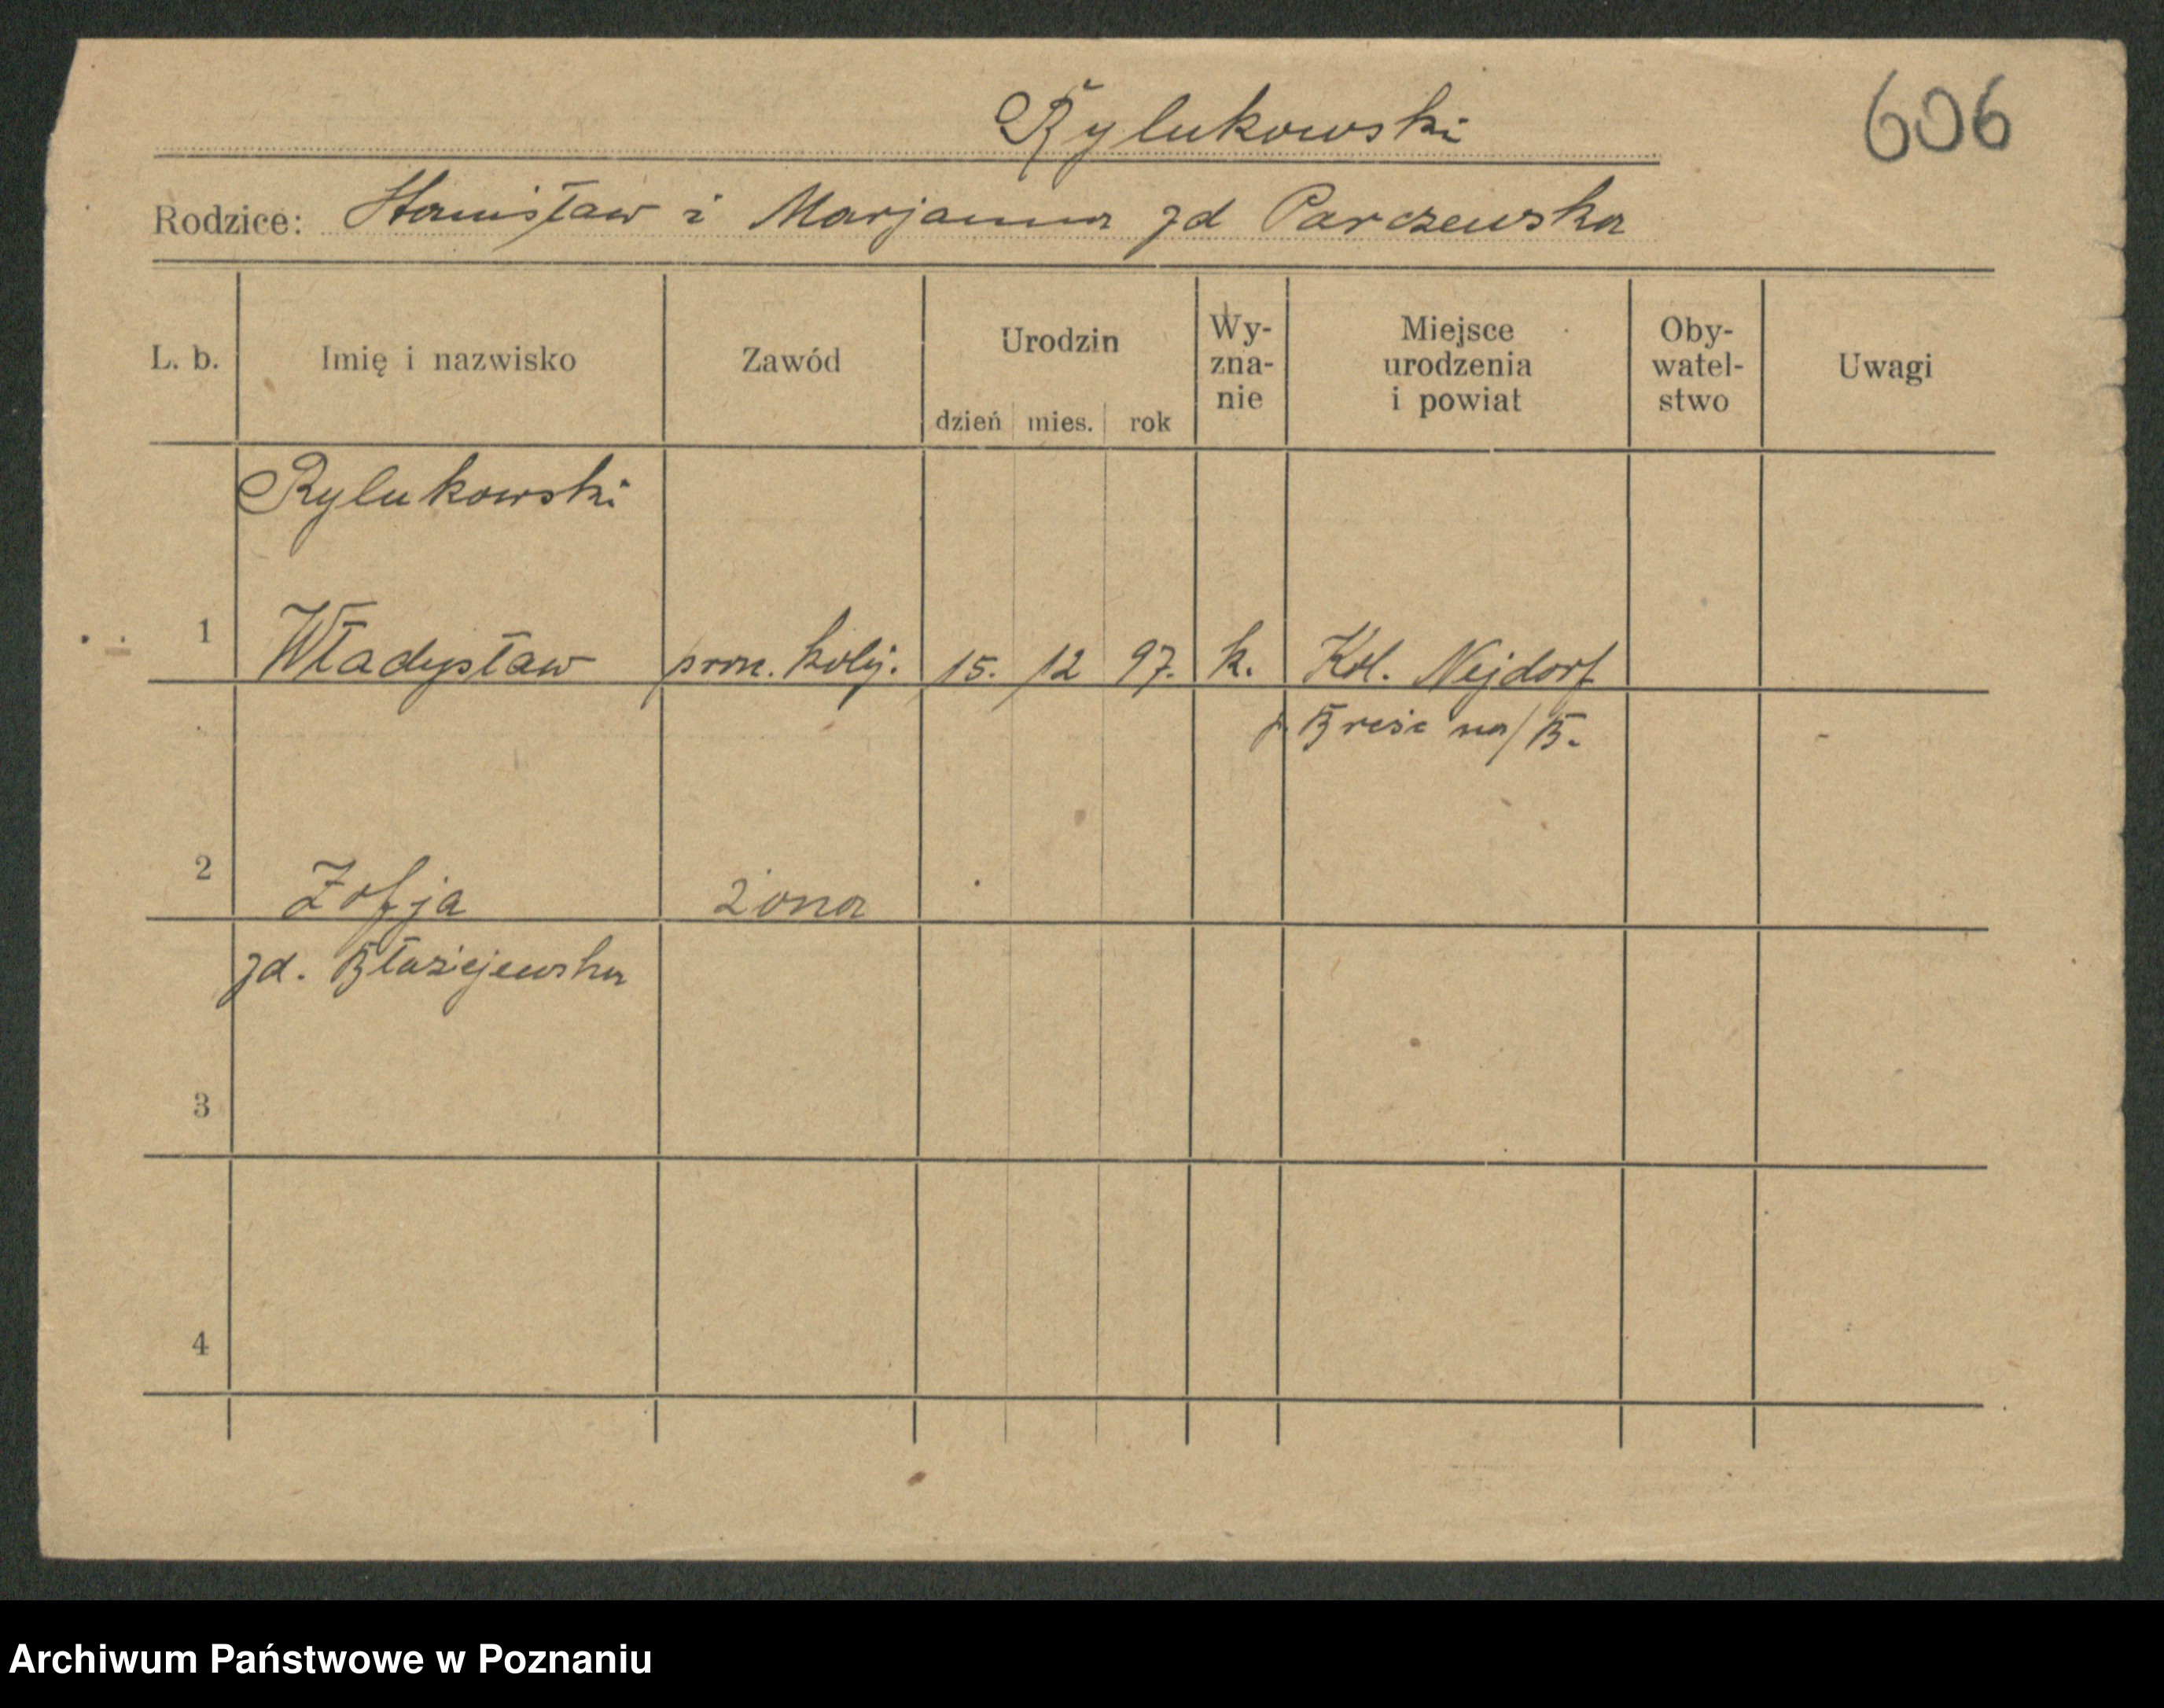 Rylukowski
606
Rodzice: Stanisław i Marjanna zd Parczewska
L. b. Imię i nazwisko Zawód Urodzin dzień mies. rok Wy-zna-nie Miejsce urodzenia i powiat Oby-watel-stwo Uwagi
Rylukowski
1 Władysław prac. kolej. 15. 12 97. k. Kol. Nejdorf
p. Brześć na/B.
2 Zofja żona
zd. Błażejewska
3
4
Archiwum Państwowe w Poznaniu